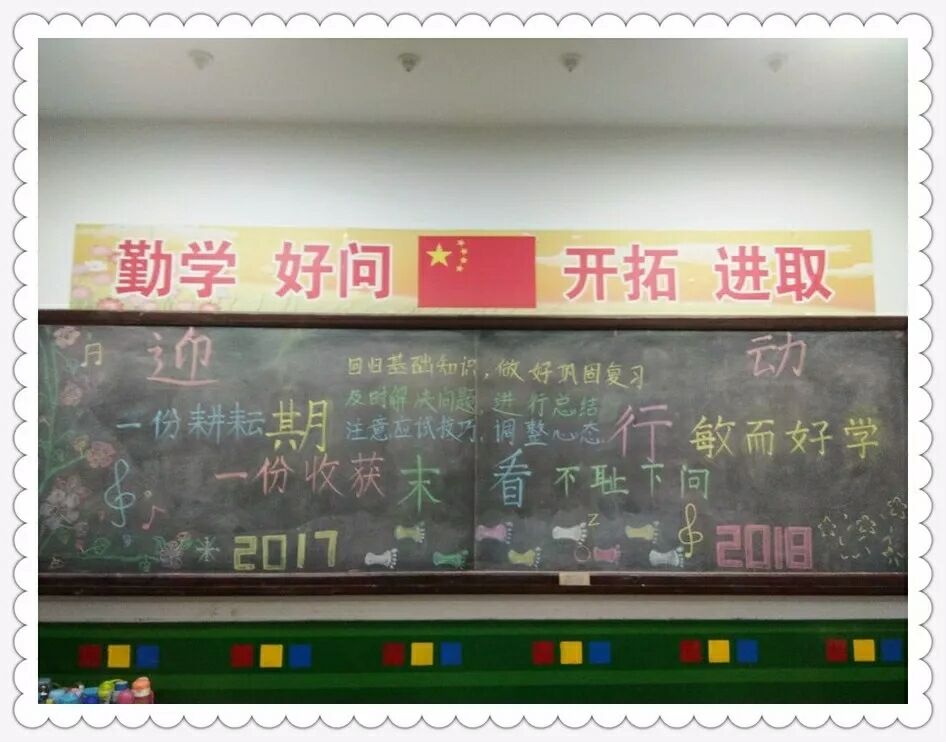 勤学 好问 开拓 进取
迎
期
末
看
行
动
回归基础知识，做好巩固复习
及时解决问题，进行总结
注意应试技巧，调整心态
一份耕耘
一份收获
敏而好学
不耻下问
2017
2018
z